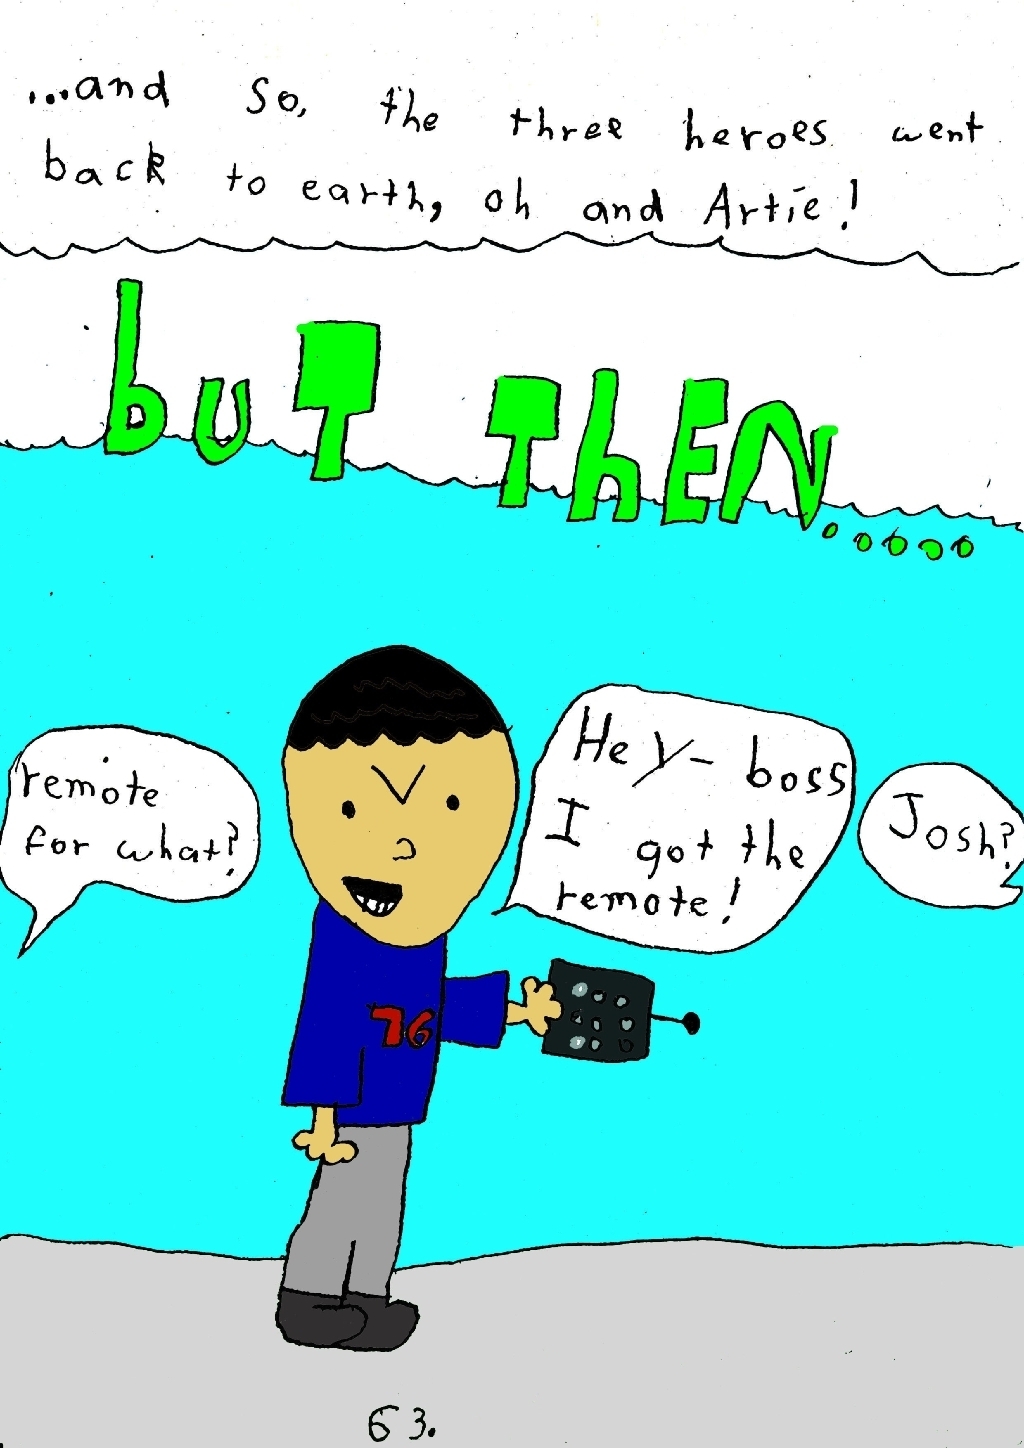 ...and so, the three heroes went
back to earth, oh and Artie!
buT ThEN......
remote
for what?
Hey- boss
I got the
remote!
Josh?
76
63.